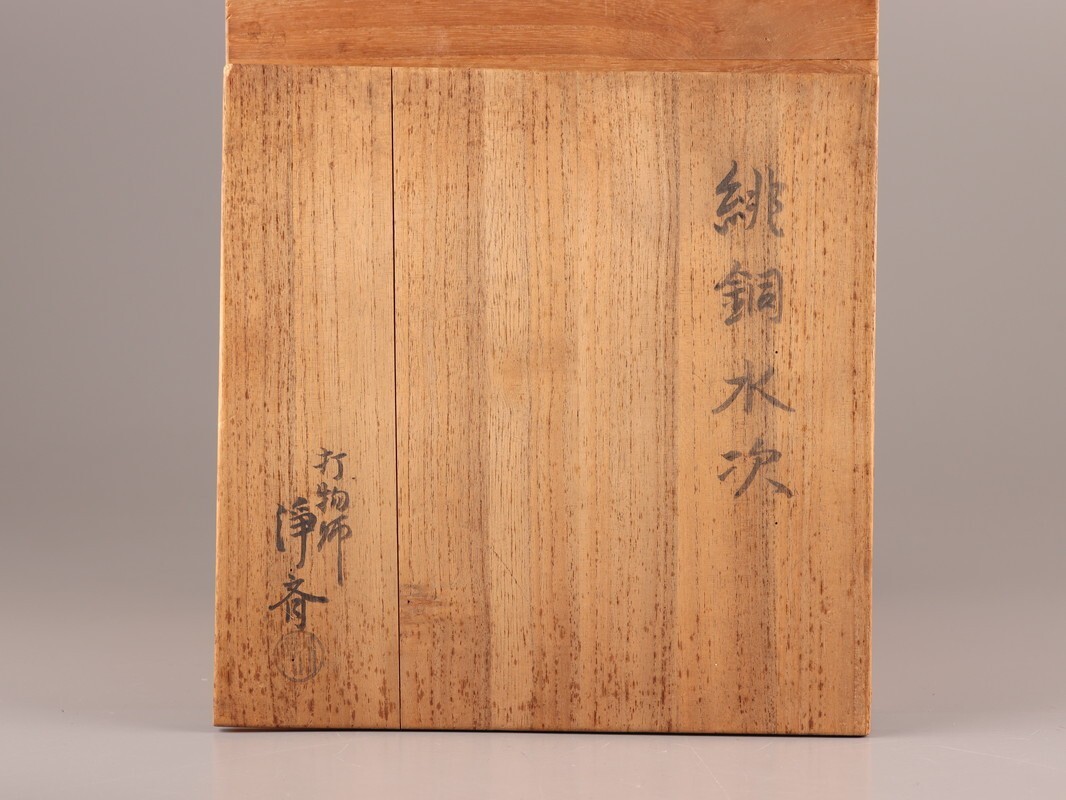 緋銅水次
打物師
淨斎